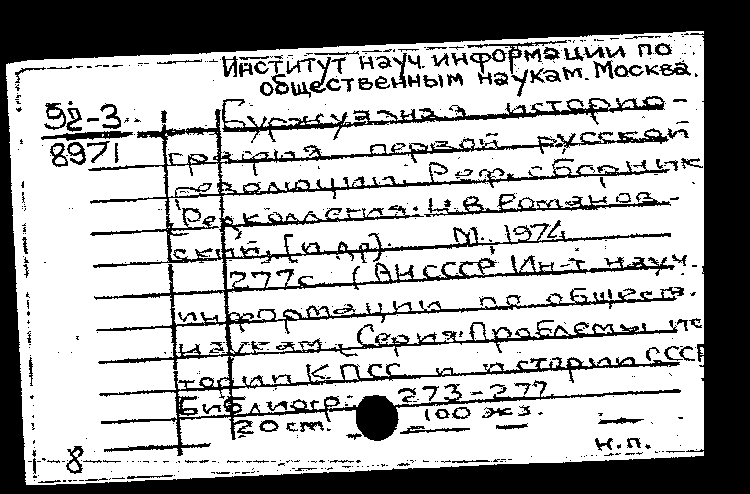 Институт науч. информации по
общественным наукам. Москва.
92-3
8971
Буржуазная историо-
графия первой русской
революции. Реф. сборник
Редколлегия: Н.В. Романов-
ский, [и др] М., 1974
277с. (АН СССР Ин-т науч.
информации по обществ.
наукам. Серия: Проблемы ис
тории КПСС и истории СССР
Библиогр: 273-277
20 см. 100 экз.
8 н.п.